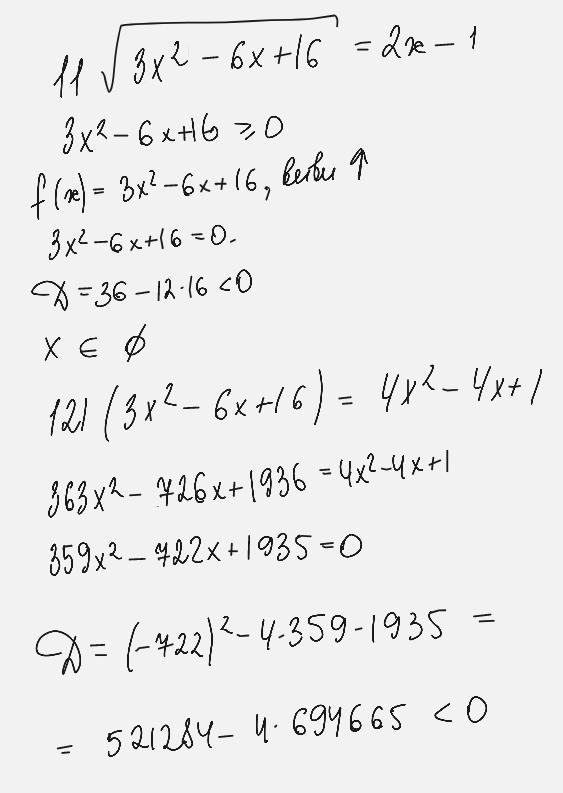 11√(3x² - 6x + 16) = 2x - 1
3x² - 6x + 16 ⩾ 0
f(x) = 3x² - 6x + 16, ветви ↑
3x² - 6x + 16 = 0.
D = 36 - 12·16 < 0
x ∈ ∅
121(3x² - 6x + 16) = 4x² - 4x + 1
363x² - 726x + 1936 = 4x² - 4x + 1
359x² - 722x + 1935 = 0
D = (-722)² - 4·359·1935 =
= 521284 - 4·694665 < 0